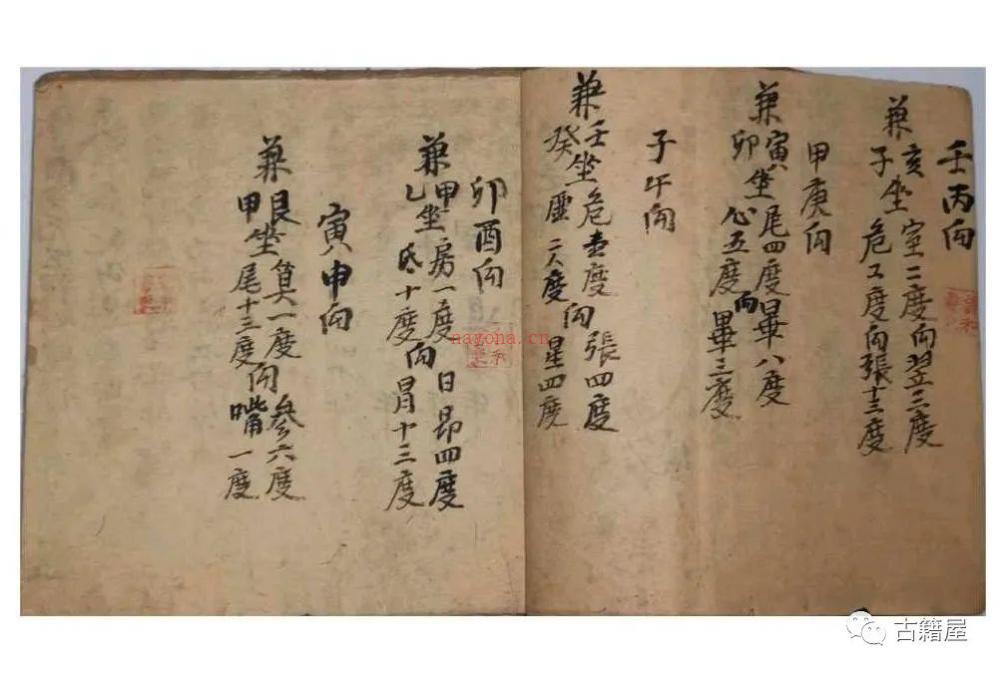 壬丙向
兼亥坐室二度向翌三度
子 危工度向張十三度
甲庚向
兼寅坐尾四度畢八度
卯 心五度向畢三度
子午向
兼壬坐危壹度向張四度
癸 虛 度 星四度
卯酉向
兼甲坐房一度日昴四度
乙 氐十度向 十三度
寅申向
兼艮坐箕一度向參六度
甲 尾十三度 嘴一度
nayona.cn
古籍屋